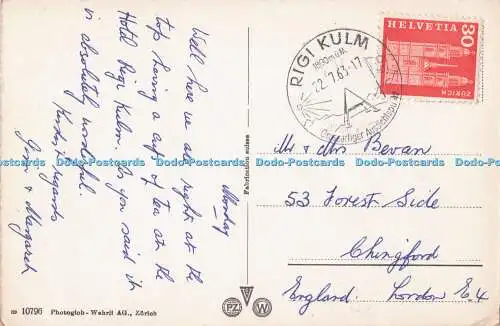 Monday
Well here we are right at the
top having a cup of tea at the
Hotel Rigi Kulm. As you said it
is absolutely wonderful.
Kindest regards
Jim & Margaret
Fabrication suisse
10796 Photoglob-Wehrli AG., Zürich
PZ
W
RIGI KULM
1800 m ü. M.
22.7.63-17
Grossartiger Aussichtspunkt
HELVETIA
30
ZÜRICH
Mr & Mrs Bevan
53 Forest Side
Chingford
England. London E.4
Dads-Postcards